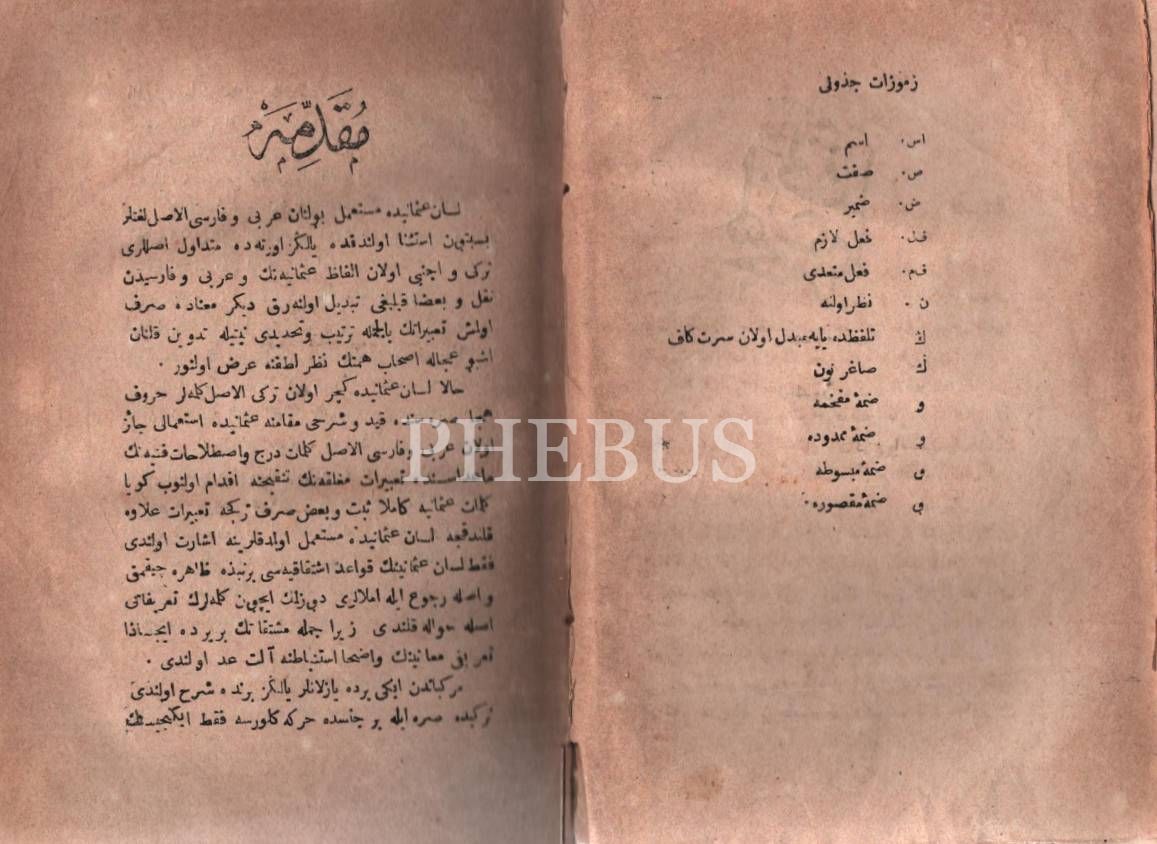 رموزات جدولی
اس. اسم
ص. صفت
ض. ضمیر
فل. فعل لازم
فم. فعل متعدی
ن. نظر اولنه
ك تلفظده یایه مبدل اولان سرت كاف
ڭ صاغر نون
و ضمهٔ مفخمه
و ضمهٔ ممدوده
و ضمهٔ مبسوطه
و ضمهٔ مقصوره.
مُقَدِّمَه
لسان عثمانیده مستعمل بولنان عربی و فارسی الاصل لغتلر
بسبتون استثنا اولندقده یالكز اورته ده متداول اصللری
تركی و اجنبی اولان الفاظ عثمانیه نك و عربی و فارسیدن
نقل و بعضا قیلیغی تبدیل اولنه رق دیكر معناده صرف
اولنمش تعبیراتك بالجمله ترتیب وتحدیدی نیتیله تدوین قلنان
اشبو عجاله اصحاب همتك نظر لطفنه عرض اولنور.
حالا لسان عثمانیده كچر اولان تركی الاصل كلمه لر حروف
هجا قید و شرحی مقامنه عثمانیده استعمالی جائز
اولان عربی و فارسی الاصل كلمات درج واصطلاحات فنیه نك
تعبیرات مغلقه نك تنقیحنه اقدام اولنوب كویا
كلمات عثمانیه كاملا ثبت و بعض صرف تركجه تعبیرات علاوه
قلندقجه لسان عثمانیده مستعمل اولدقلرینه اشارت اولندی
فقط لسان عثمانینك قواعد اشتقاقیه سی برنبذه ظاهره چیقمق
و اصله رجوع ایله املالری دوزلمك ایچون كلمه لرك تعریفاتی
اصله حواله قلندی زیرا جمله مشتقاتك بر یرده ایجازا
تعریفی معانینك واضحا استنباطنه آلت عد اولندی.
مركباتدن ایكی یرده یازلانلر یالكز برنده شرح اولندی
تركیده صره ایله بر جنسده حركه كلورسه فقط ایكنجیسنك
PHEBUS